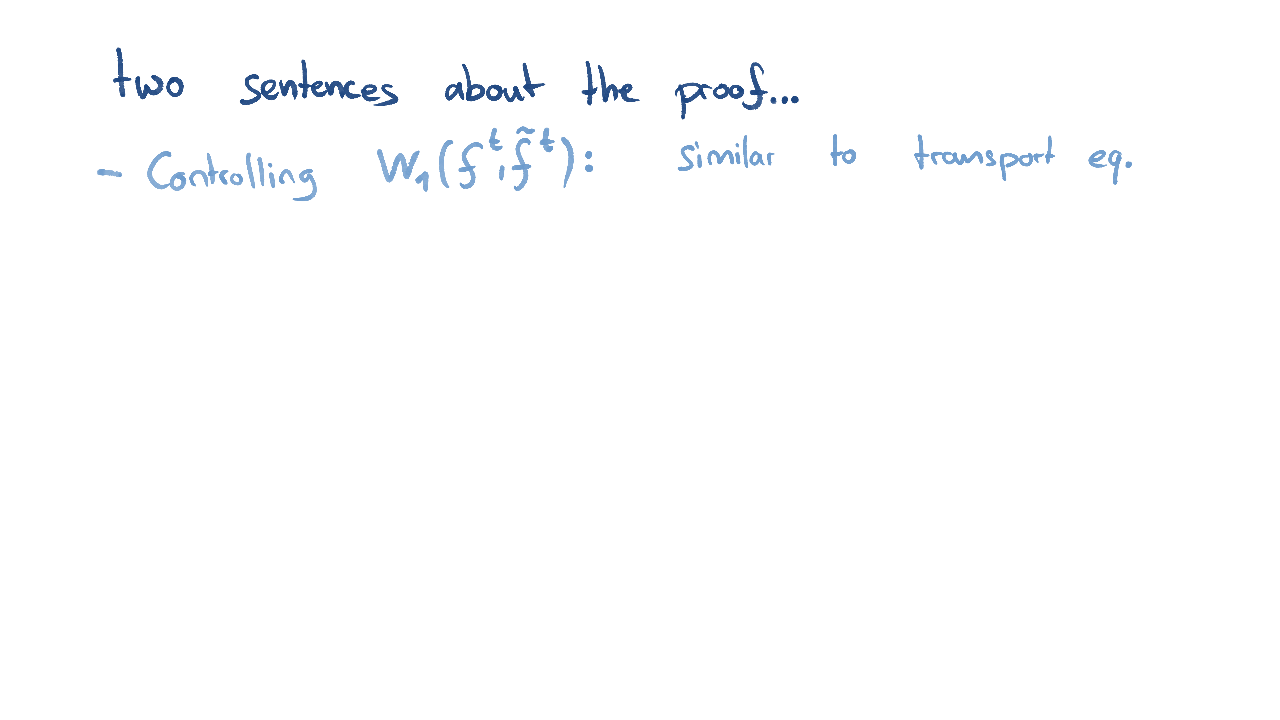 two sentences about the proof...
- Controlling W₁(fᵗ, f̃ᵗ): similar to transport eq.